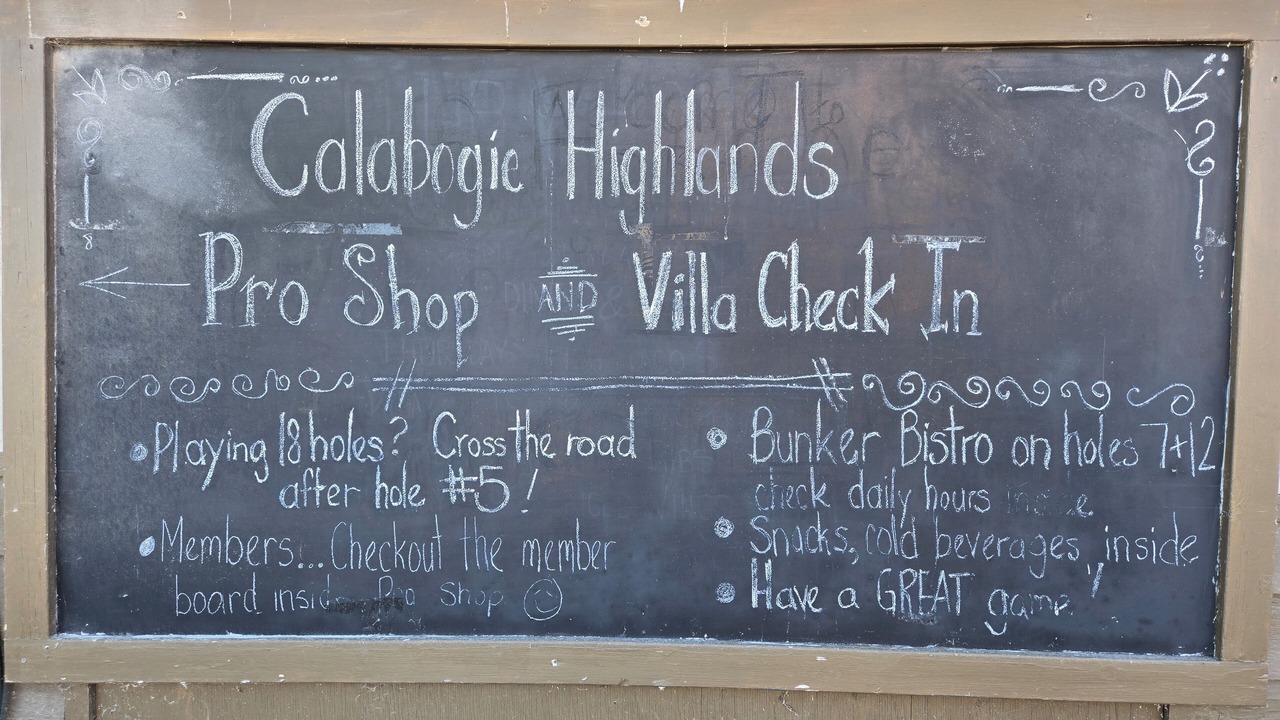 Calabogie Highlands
Pro Shop AND Villa Check In
• Playing 18 holes? Cross the road
after hole #5!
• Members... Checkout the member
board inside Pro Shop
• Bunker Bistro on holes 7+12
check daily hours inside
• Snacks, cold beverages inside
• Have a GREAT game!